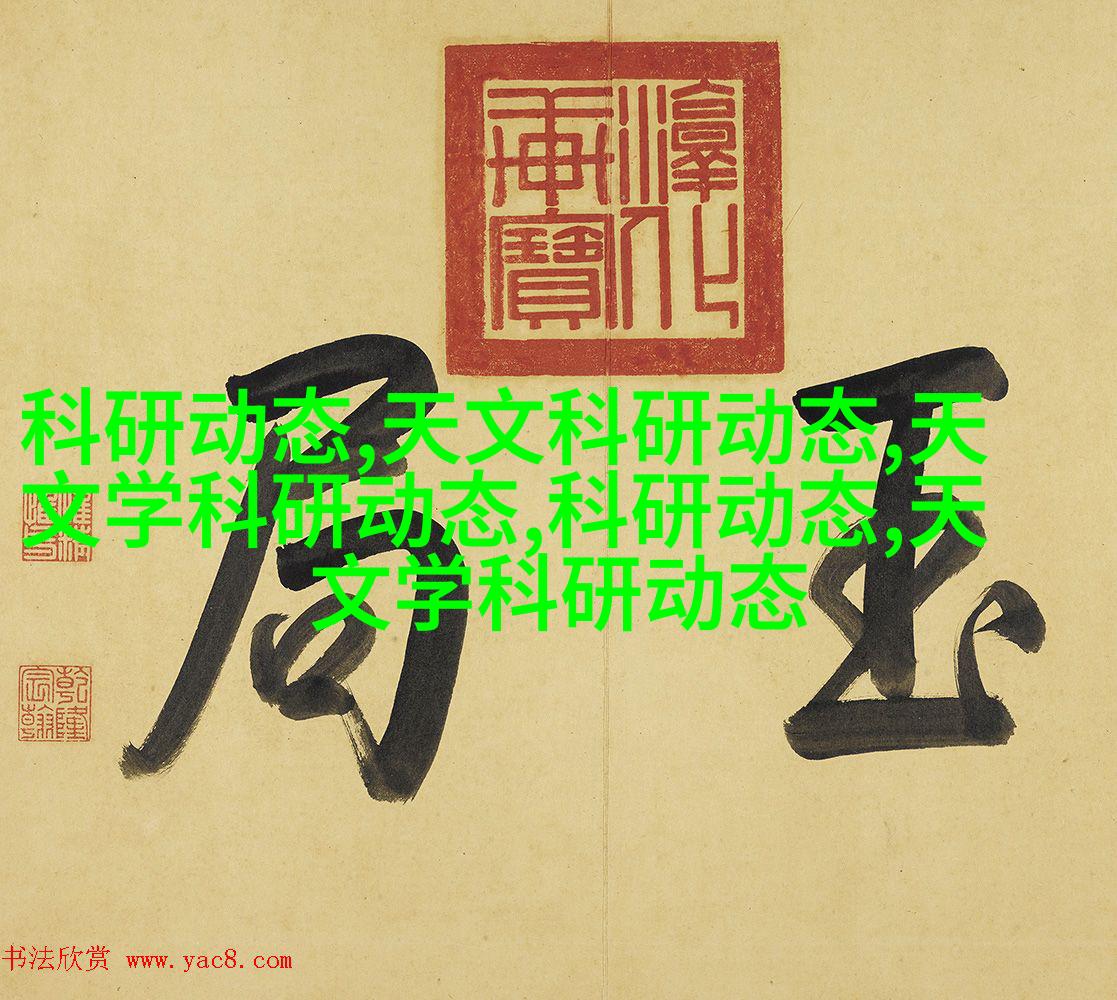 淳化
軒寶
玉局
科研动态,天文科研动态,天
文学科研动态,科研动态,天
文学科研动态
乾隆
宸翰
书法欣赏 www.yac8.com